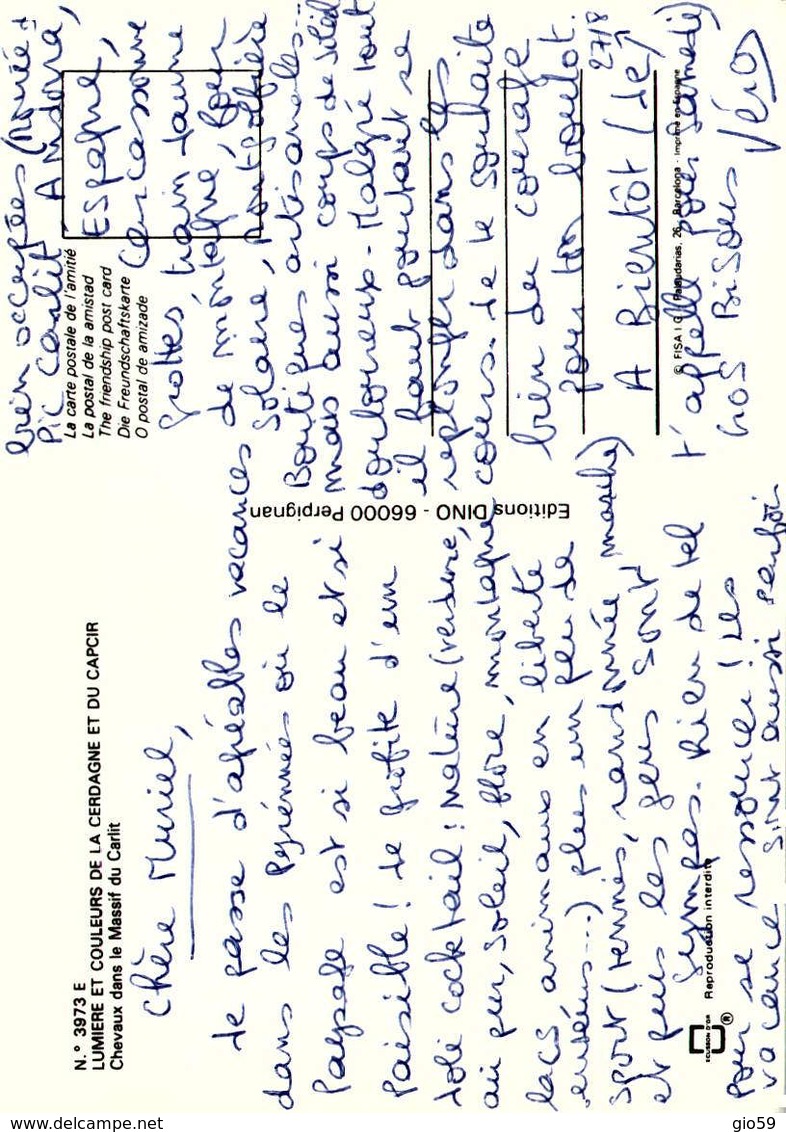 N.° 3973 E
LUMIERE ET COULEURS DE LA CERDAGNE ET DU CAPCIR
Chevaux dans le Massif du Carlit
Chère Muriel,
Je passe d'agréables vacances
dans les Pyrénnées où le
Paysage est si beau et si
Paisible ! Je profite d'un
joli cocktail : Nature (verdure,
air pur, soleil, flore, montagne
lacs animaux en liberté
) plus un peu de
sport (tennis, randonnée marche)
et puis les gens sont
sympas. Rien de tel
Pour se ressourcer ! Les
vacances sont aussi
bien occupées (montée +
Pic Carlit Andorra,
ESPagne,
Carcassonne
grottes train Jaune
de montagne, Four
Solaire,
Boutiques artisanales...
mais aussi coups de soleil
douloureux - Malgré tout
il faut pourtant se
replonger dans les
cours. Je te souhaite
bien du courage
pour ton boulot.
27/8
A Bientôt (Je
t'appelle pour samedi)
Gros Bisous Véro
La carte postale de l'amitié
La postal de la amistad
The friendship post card
Die Freundschaftskarte
O postal de amizade
Editions DINO - 66000 Perpignan
© FISA I.G. Palaudarias, 26, Barcelona - Imprimé en Espagne
ECUSSON D'OR
®
Reproduction interdite
www.delcampe.net
gio59